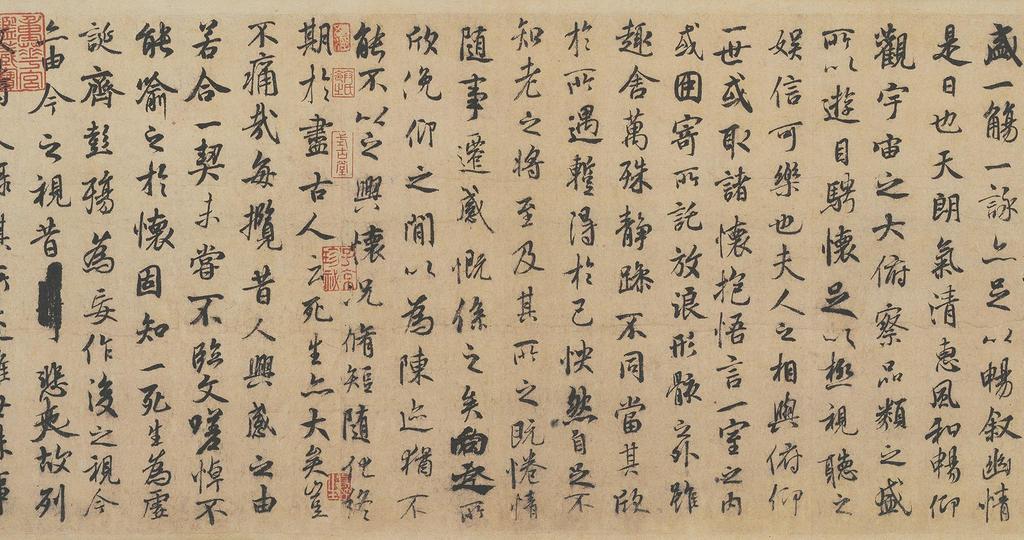 盛一觴一詠亦足以暢敘幽情
是日也天朗氣清惠風和暢仰
觀宇宙之大俯察品類之盛
所以遊目騁懷足以極視聽之
娛信可樂也夫人之相與俯仰
一世或取諸懷抱悟言一室之內
或因寄所託放浪形骸之外雖
趣舍萬殊靜躁不同當其欣
於所遇蹔得於己怏然自足不
知老之將至及其所之既惓情
隨事遷感慨係之矣向之所
欣俛仰之閒以為陳迹猶不
能不以之興懷況脩短隨化終
期於盡古人云死生亦大矣豈
不痛哉每攬昔人興感之由
若合一契未嘗不臨文嗟悼不
能喻之於懷固知一死生為虛
誕齊彭殤為妄作後之視今
亦由今之視昔悲夫故列